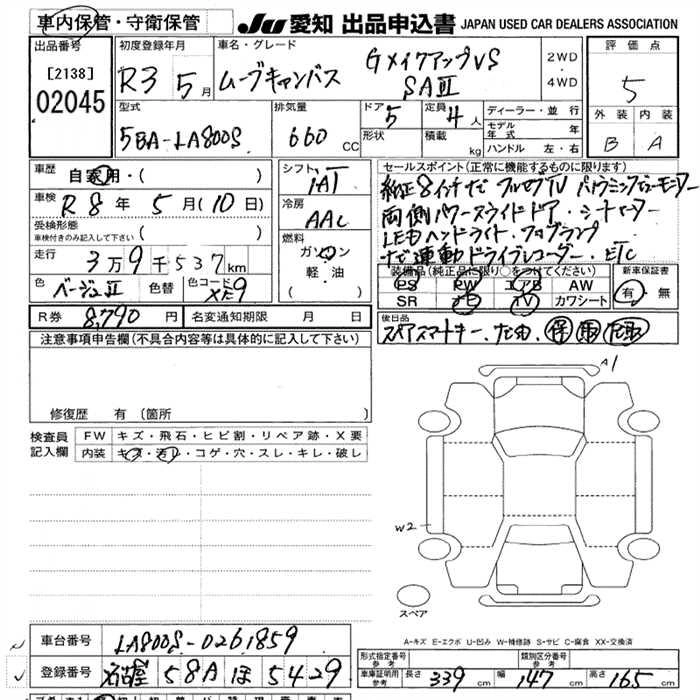 車内保管・守衛保管
JU 愛知 出品申込書 JAPAN USED CAR DEALERS ASSOCIATION
出品番号
[2138]
02045
初度登録年月
R3 5月
車名・グレード
ムーブキャンバス
Gメイクアップ VS
SAⅢ
2WD
4WD
評価点
5
外装 内装
B A
型式
5BA-LA800S
排気量
660 CC
ドア 5
定員 4人
形状
積載 kg
ディーラー・並行
モデル年式 年
ハンドル 左・右
車歴
自家用・( )
車検
R 8年 5月(10日)
受検形態
車検付きのみ記入して下さい
( )
走行
3万9千537km
色
ベージュⅡ
色替
色コード
XE9
シフト
IAT
冷房
AAC
燃料
ガソリン
軽・油
( )
セールスポイント(正常に機能するものに限ります)
純正8インチナビ フルセグTV パノラミックビューモニター
両側パワースライドドア・シートヒーター
LEDヘッドライト・フォグランプ
ナビ連動ドライブレコーダー・ETC
装備品(純正品に限り○をつけてください)
PS PW エアB AW
SR ナビ TV カワシート
新車保証書
有・無
後日品
スペアスマートキー.
保 取
R券 8,790円
名変通知期限 月 日
注意事項申告欄(不具合内容等は具体的に記入して下さい)
修復歴 有(箇所
検査員
記入欄
FW キズ・飛石・ヒビ割・リペア跡・X要
内装 キズ・汚レ・コゲ・穴・スレ・キレ・破レ
A1
W2
スペア
A-キズ E-エクボ U-凹み W-補修跡 S-サビ C-腐食 XX-交換済
車台番号
LA800S-0261859
登録番号
名古屋 58A ほ 5429
形式指定番号
参考
類別区分番号
参考
車庫証明用
参考
長さ 339 cm
幅 147 cm
高さ 165 cm